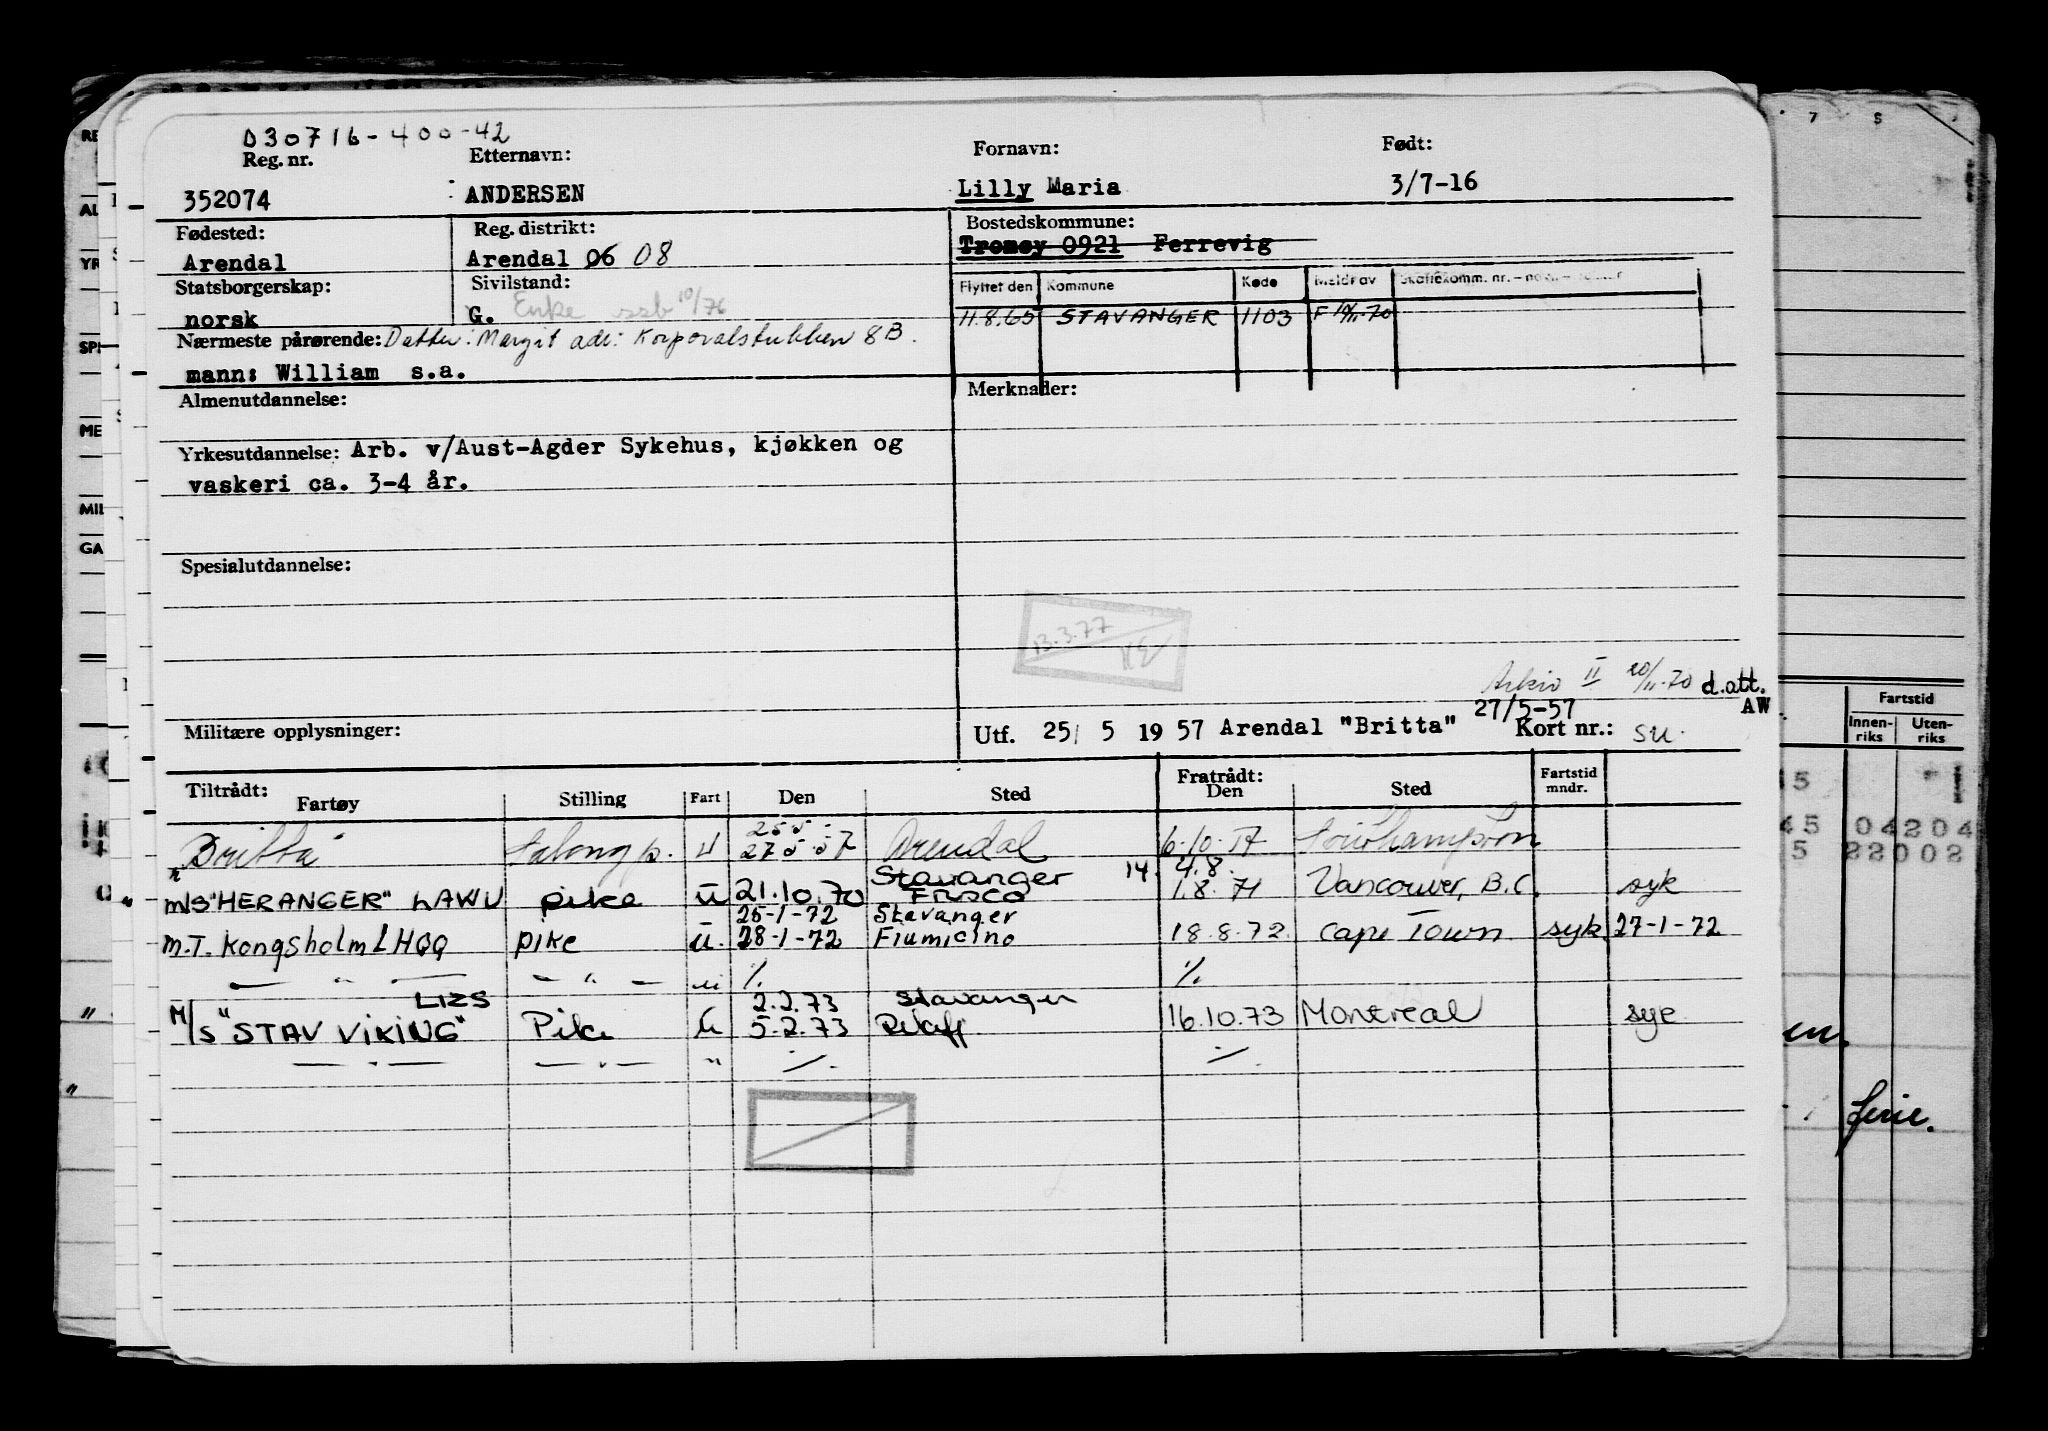 030716-400-42
Reg. nr. Etternavn: Fornavn: Født:
352074 ANDERSEN Lilly Maria 3/7-16
Fødested: Reg. distrikt: Bostedskommune:
Arendal Arendal 06 08 Tromøy 0921 Ferrevig
Statsborgerskap: Sivilstand: Flyttet den Kommune Kode Meldt av
norsk G. Enke ssb 10/76 11.8.65 STAVANGER 1103 F 10/11-70
Nærmeste pårørende: Datter: Margit adr: Korporalstubben 8B.
mann: William s.a.
Almenutdannelse: Merknader:
Yrkesutdannelse: Arb. v/Aust-Agder Sykehus, kjøkken og
vaskeri ca. 3-4 år.
Spesialutdannelse:
13.3.77
Arkiv II 20/11-70 d.att.
27/5-57 AW
Militære opplysninger: Utf. 25/ 5 19 57 Arendal "Britta" Kort nr.: su.
Tiltrådt: Fratrådt: Fartstid
Fartøy Stilling Fart Den Sted Den Sted mndr.
Britta Salongp. u 27 5 57 Arendal 6.10.57 Southampton
Stavanger 14. 4.8.
M/S "HERANGER" LAWU pike u 21.10.70 FRISCO 1.8.71 Vancouver, B.C. syk
25-1-72 Stavanger
M.T. Kongsholm LHQQ pike u. 28-1-72 Fiumicino 18.8.72. Cape Town syk 27-1-72
— " — — " — u ./. ./.
LIZS 2.2.73 Stavanger
M/S "STAV VIKING" Pike u 5.2.73 16.10.73 Montreal syk
— " — — " — " ./. ./.
7 8
RE
AL
YR
SPE
ME
MIL
GA
Fartstid
Innen-
riks
Uten-
riks
45 04204
5 22002
en.
ferie.